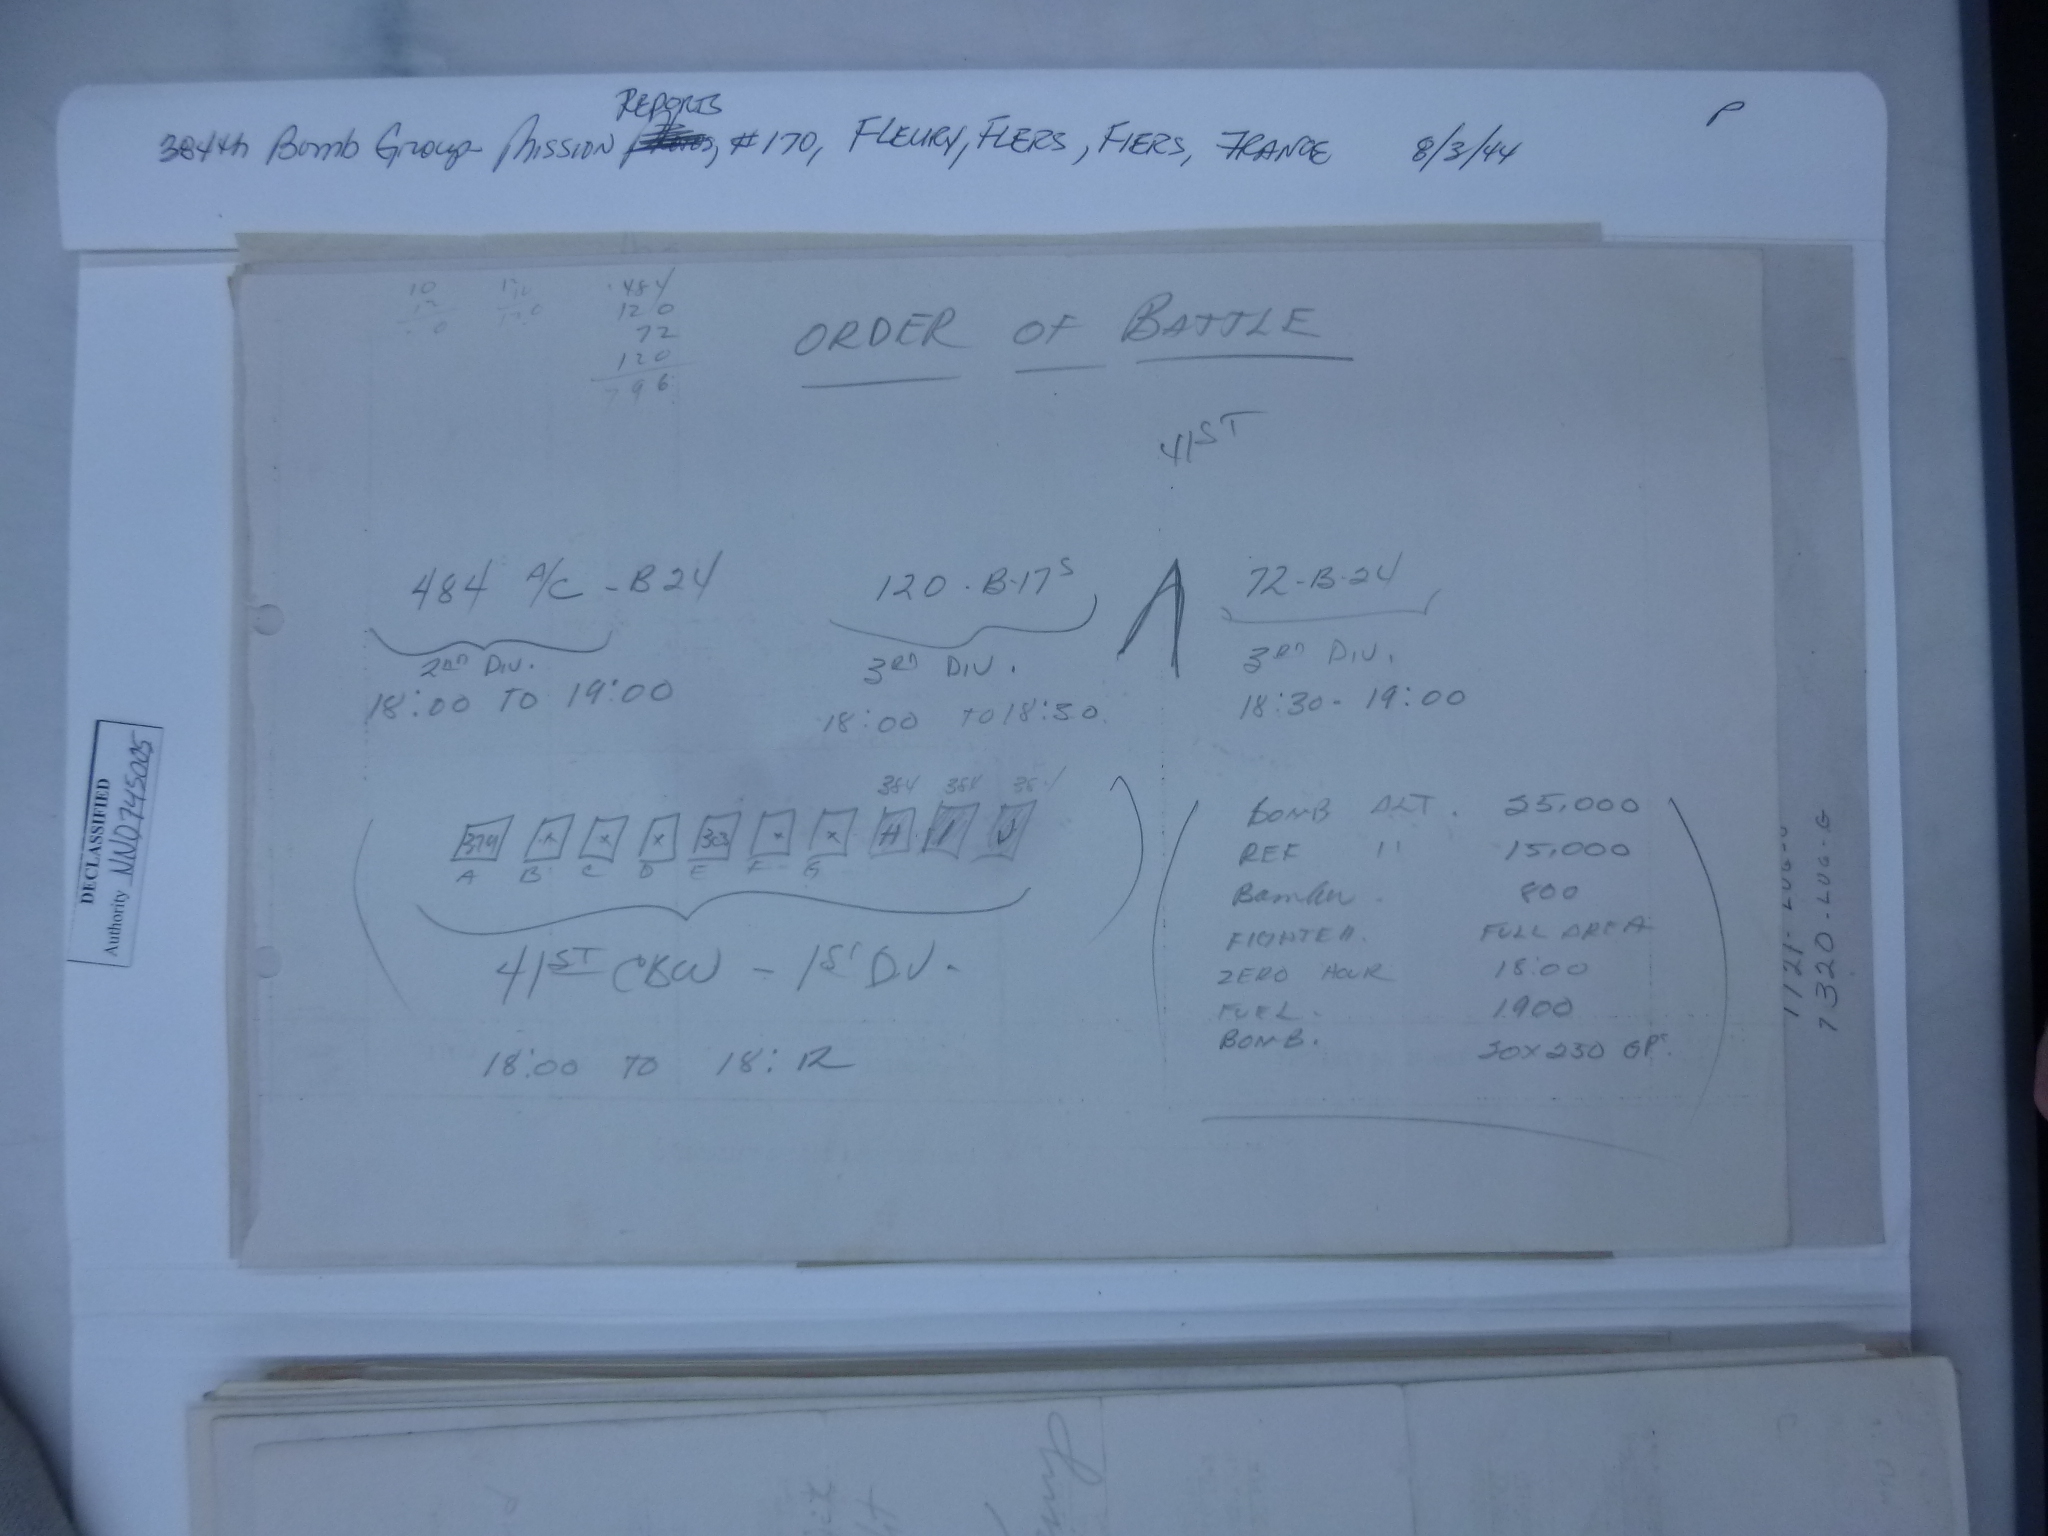 REPORTS
384th Bomb Group Mission #170, FLEURY, FLERS, FIERS, FRANCE 8/3/44 P
484
120
72
120
796
ORDER OF BATTLE
41ST
484 A/C - B24
120 - B-17S
72-B-24
2ND DIV.
3RD DIV.
3RD DIV.
18:00 TO 19:00
18:00 TO 18:30
18:30 - 19:00
384 384 384
379 x x x 303 x x H I J
A B C D E F G
41ST CBW - 1ST DIV.
18:00 TO 18:12
BOMB ALT. 25,000
REF " 15,000
Bomber. 800
FIGHTER. FULL AREA
ZERO HOUR 18:00
FUEL. 1900
BOMB. 20x250 GP.
DECLASSIFIED
Authority NND745005
7320-LUG-G